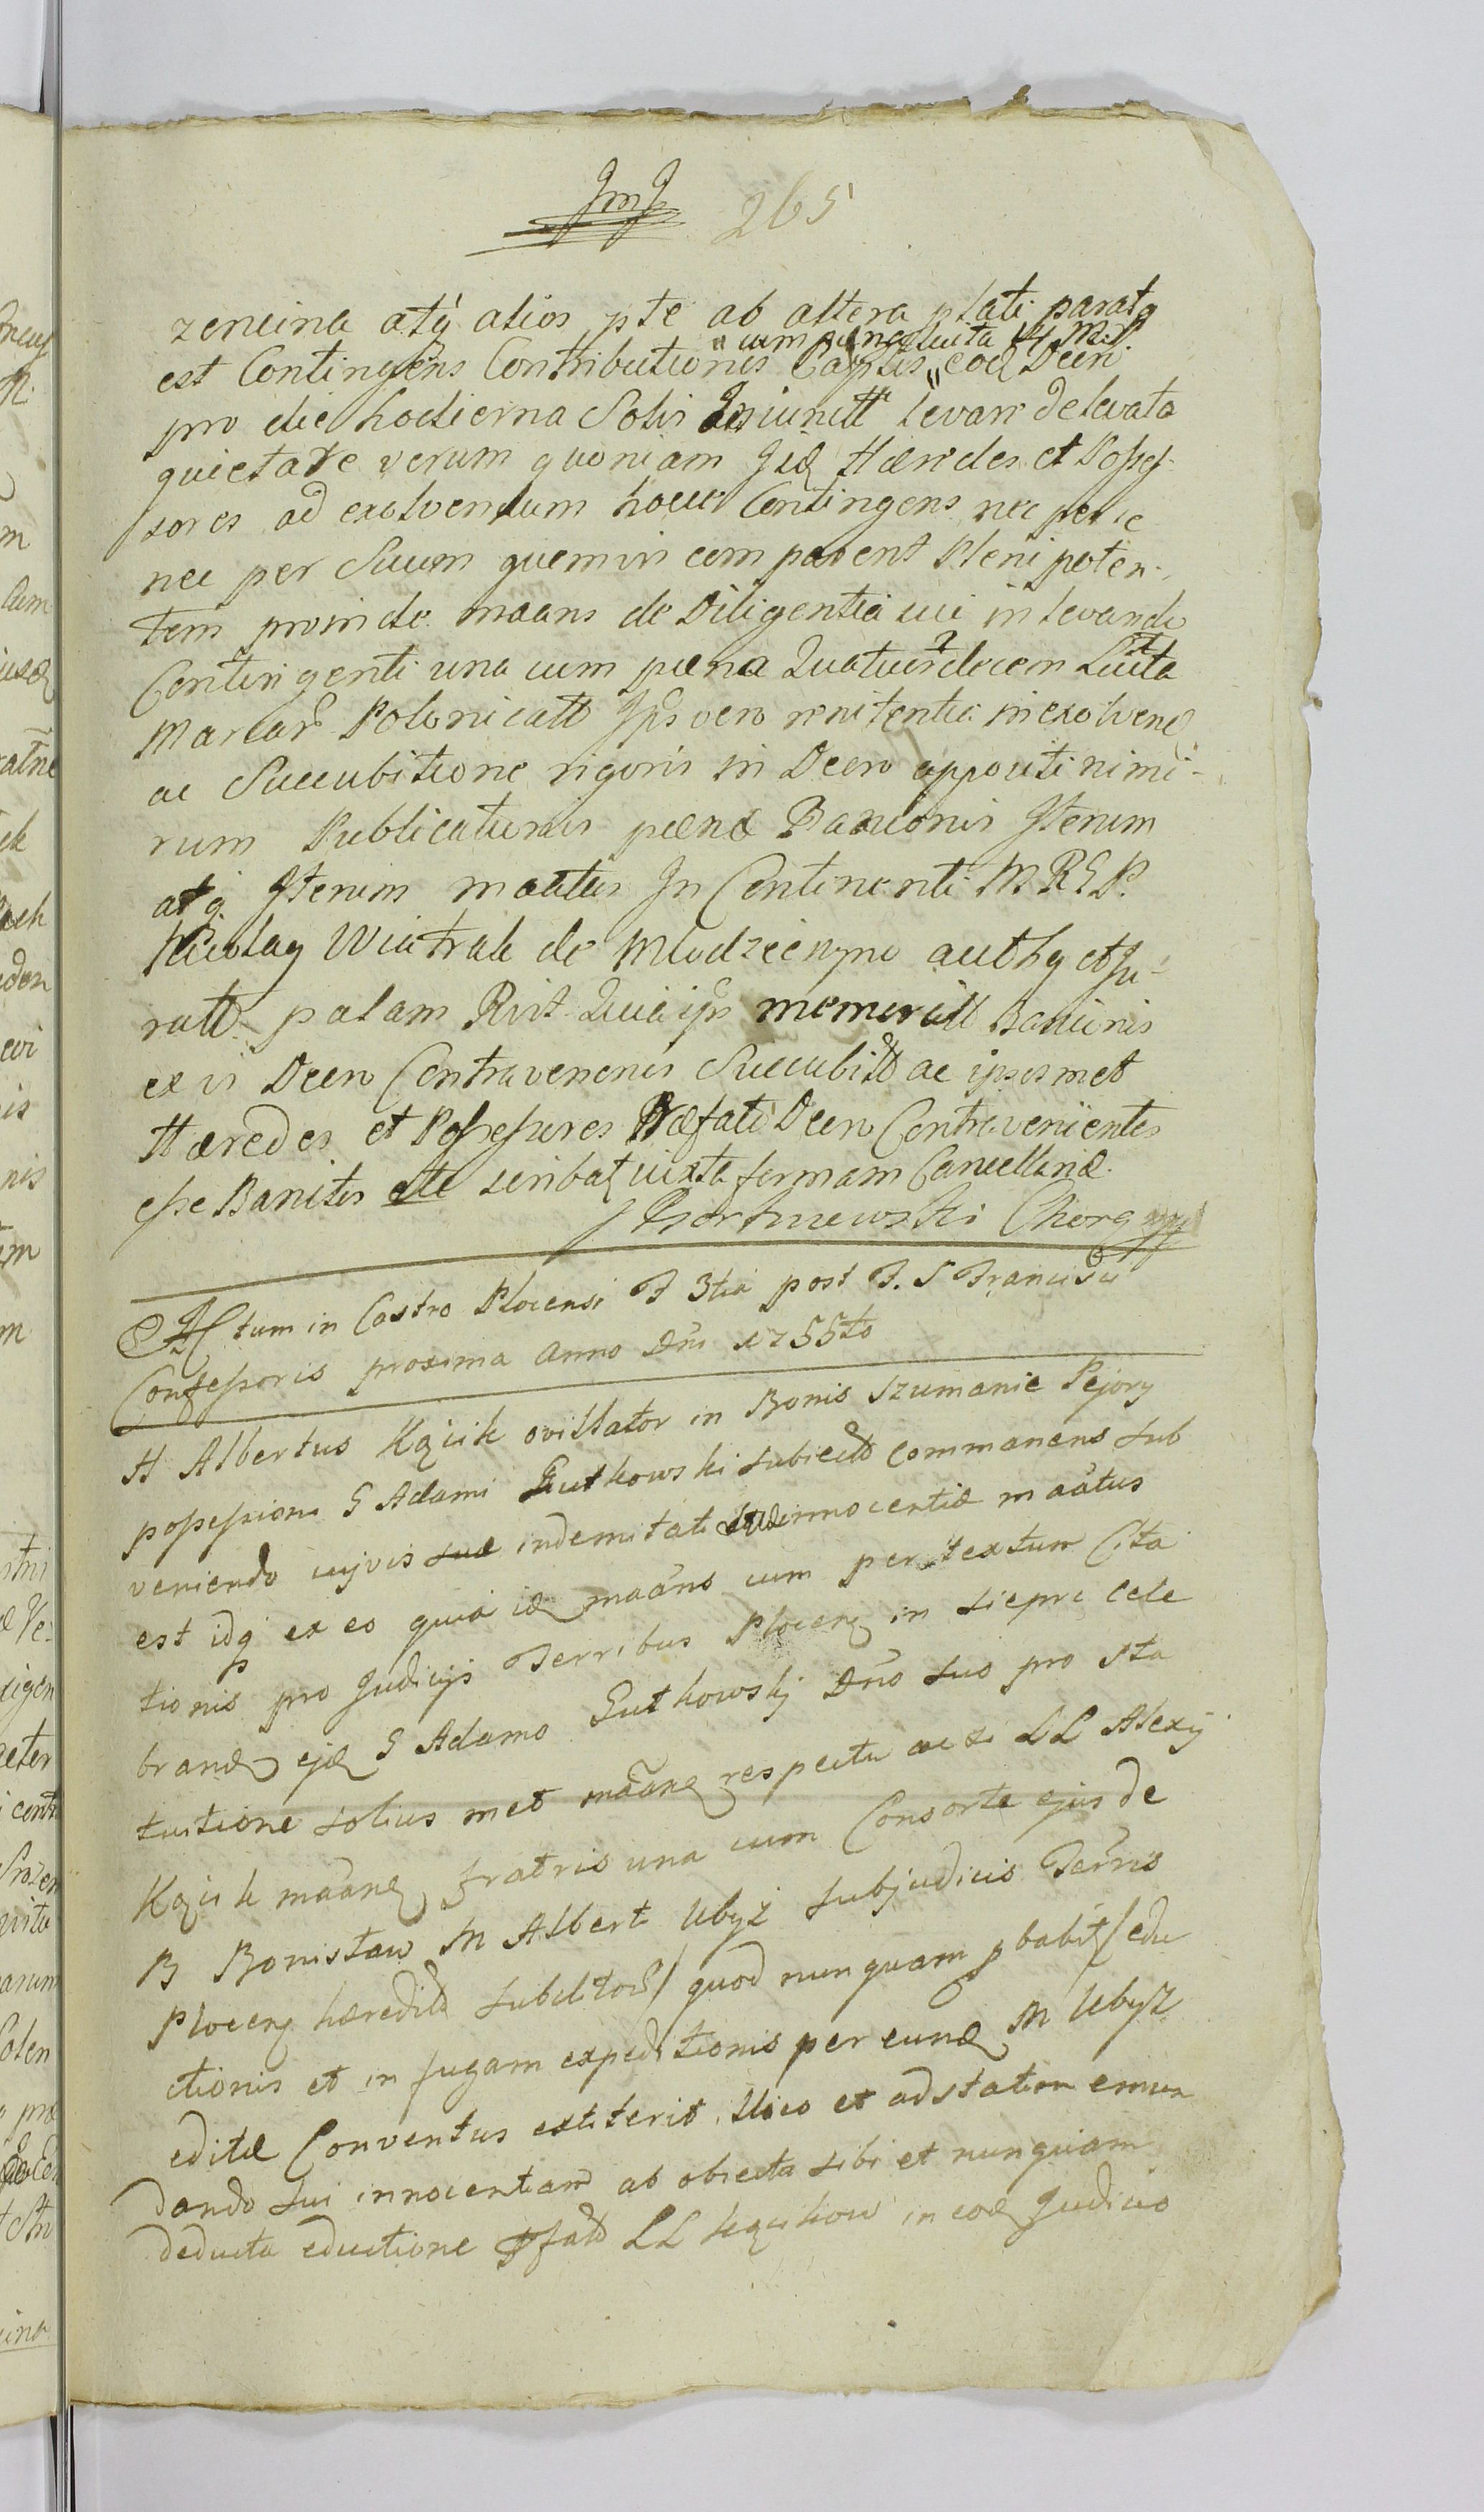 JmJ 265
zencina atq alios pte ab altera plati paratq
" cum paena luita 14 M. P.
est Contingens Contributionis Capitis " eod Decri
pro die hodierna Solvi Iniunctt levare de levata
quietare verum quoniam Iid Haeredes et Posses-
sores ad exolvendum hocce Contingens nec per se
nec per Suum quemvis comparent Plenipoten-
tem proinde maans de Diligentia sui in levando
Contingenti una cum paena Quatuordecem Luita
Marcar Polonicall Ips vero renitentia in exolvend
ac Succubitione rigoris in Decro appositi nimi-
rum Publicationis paenae Banionis Iterum
atq Iterum maatus In Continenti M R G P.
Nicolaq Wiatrak de Mlodzienyno authq et Ju-
ratt palam Rvit Quia ips memoratt Banionis
ex vi Decro Contravenenis Succubitt ac ipsosmet
Haeredes et Possessores Praefato Decro Contravenientes
esse Banitos ette scribat juxta formam Cancellariae.
Chorq
Actum in Castro Plocensi F 3tia post F. S Francisci
Confessoris proxima Anno Dni 1755to
H Albertus Kącik ovillator in Bonis Szumanie Pejory
possessioni G Adami Gutkowski subiectt commanens sub
veniendo cujvis suae indemitati et innocentiae maatus
est idq ex eo quia id maans cum per textum Cita
tionis pro Judicijs Terribus Plocens in Sieprc Cele
brand ejd G Adamo Gutkowskj Dno suo pro sta
tuitione solius met maans respectu ac si LL Alexij
Kącik maans fratris una cum Consorte ejus de
B Bonislaw M Albert Ubysz Subjudicis Terris
Plocens haeredit subditor / quod nunquam pbabit / edu
ctionis et in fugam expeditionis per eund M Ubysz
editae Conventus extiterit. Ilico et adstatim emun
dando sui innocentiam ab obiecta sibi et nunquam
deducta eductione pfatt LL Kącikow in eod Judicio